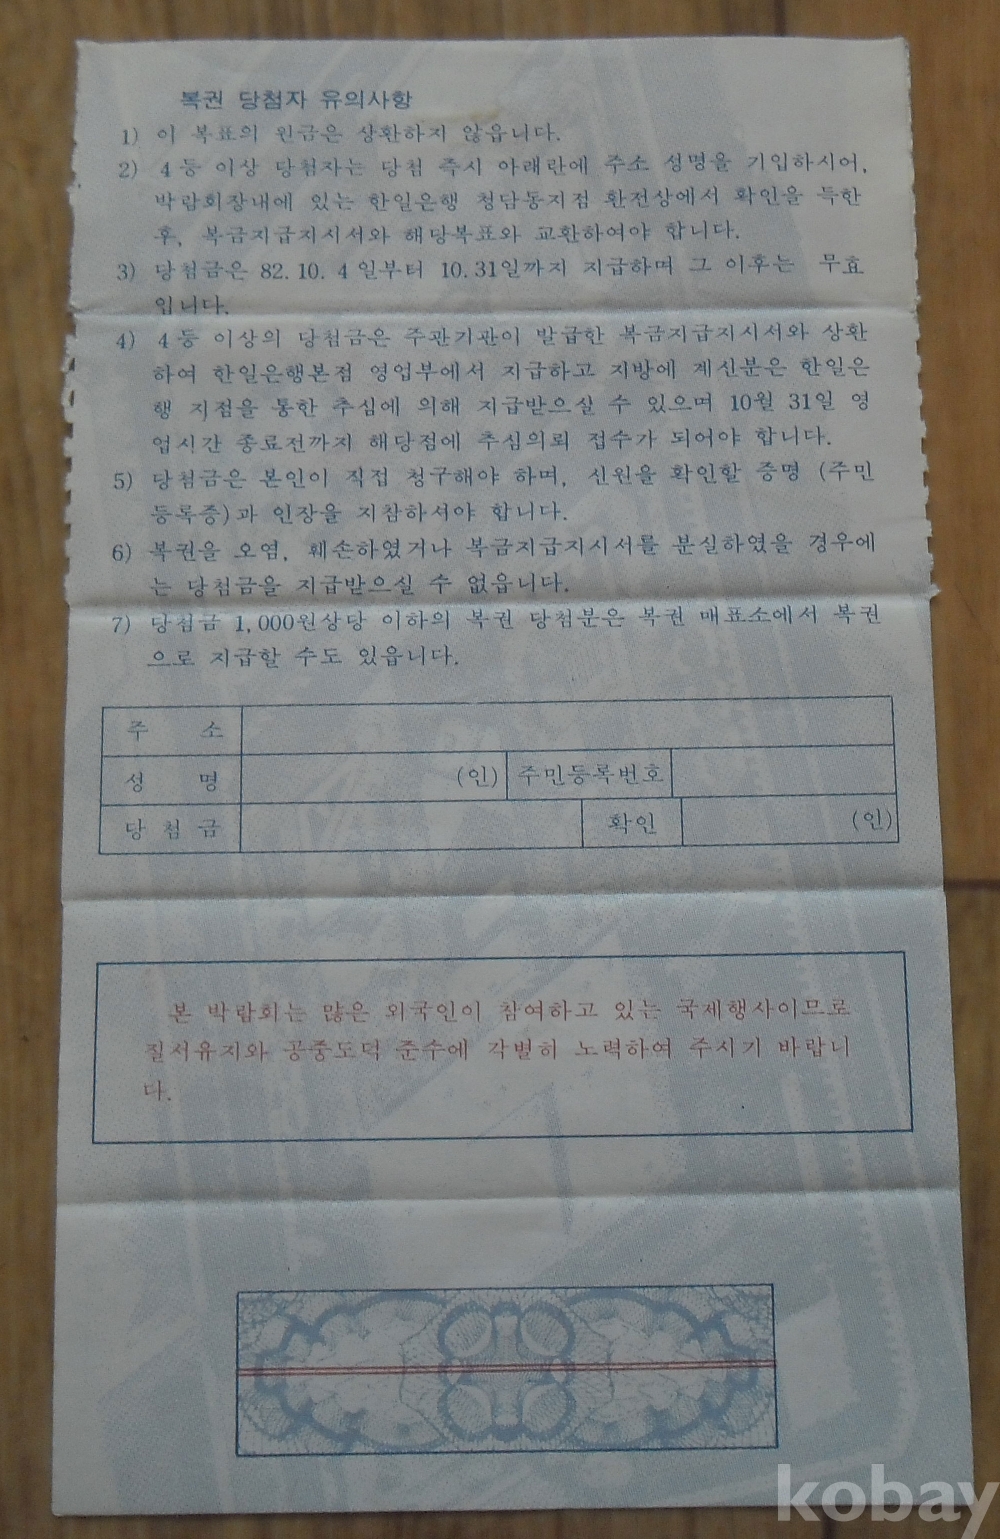 복권 당첨자 유의사항
1) 이 복표의 원금은 상환하지 않읍니다.
2) 4등 이상 당첨자는 당첨 즉시 아래란에 주소 성명을 기입하시어,
박람회장내에 있는 한일은행 청담동지점 환전상에서 확인을 득한
후, 복금지급지시서와 해당복표와 교환하여야 합니다.
3) 당첨금은 82. 10. 4일부터 10. 31일까지 지급하며 그 이후는 무효
입니다.
4) 4등 이상의 당첨금은 주관기관이 발급한 복금지급지시서와 상환
하여 한일은행본점 영업부에서 지급하고 지방에 계신분은 한일은
행 지점을 통한 추심에 의해 지급받으실 수 있으며 10월 31일 영
업시간 종료전까지 해당점에 추심의뢰 접수가 되어야 합니다.
5) 당첨금은 본인이 직접 청구해야 하며, 신원을 확인할 증명 (주민
등록증)과 인장을 지참하셔야 합니다.
6) 복권을 오염, 훼손하였거나 복금지급지시서를 분실하였을 경우에
는 당첨금을 지급받으실 수 없읍니다.
7) 당첨금 1,000원상당 이하의 복권 당첨분은 복권 매표소에서 복권
으로 지급할 수도 있읍니다.
주 소
성 명 (인) 주민등록번호
당 첨 금 확인 (인)
본 박람회는 많은 외국인이 참여하고 있는 국제행사이므로
질서유지와 공중도덕 준수에 각별히 노력하여 주시기 바랍니
다.
kobay